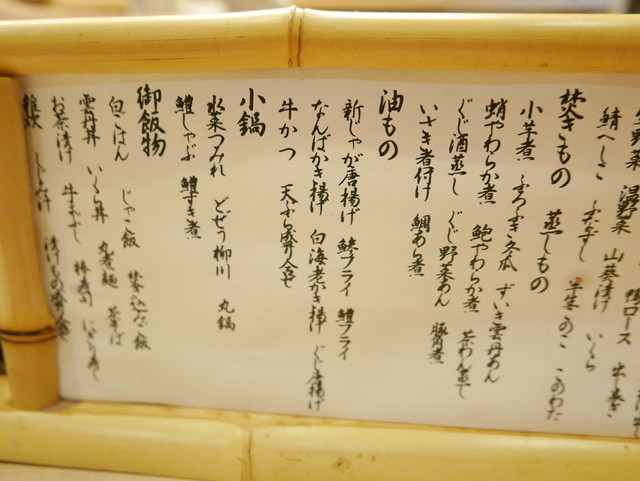 生野菜 温野菜 鴨ロース
鯖へしこ 山葵漬け いくら
半生このこ このわた
焚きもの 蒸しもの
小芋煮 ふろふき冬瓜 ずいき雲丹あん
蛸やわらか煮 鮑やわらか煮 茶わん蒸し
ぐじ酒蒸し ぐじ野菜あん 豚角煮
いさき煮付け 鯛あら煮
油もの
新じゃが唐揚げ 鱧フライ
なんばかき揚げ 白海老かき揚げ ぐじ唐揚げ
牛かつ 天ぷら盛り合せ
小鍋
水菜つみれ どぜう柳川 丸鍋
鱧しゃぶ 鱧すき煮
御飯物
白ごはん じゃこ飯 炊込み御飯
雲丹丼 いくら丼 丸煮麺 茶そば
お茶漬け 棒寿司